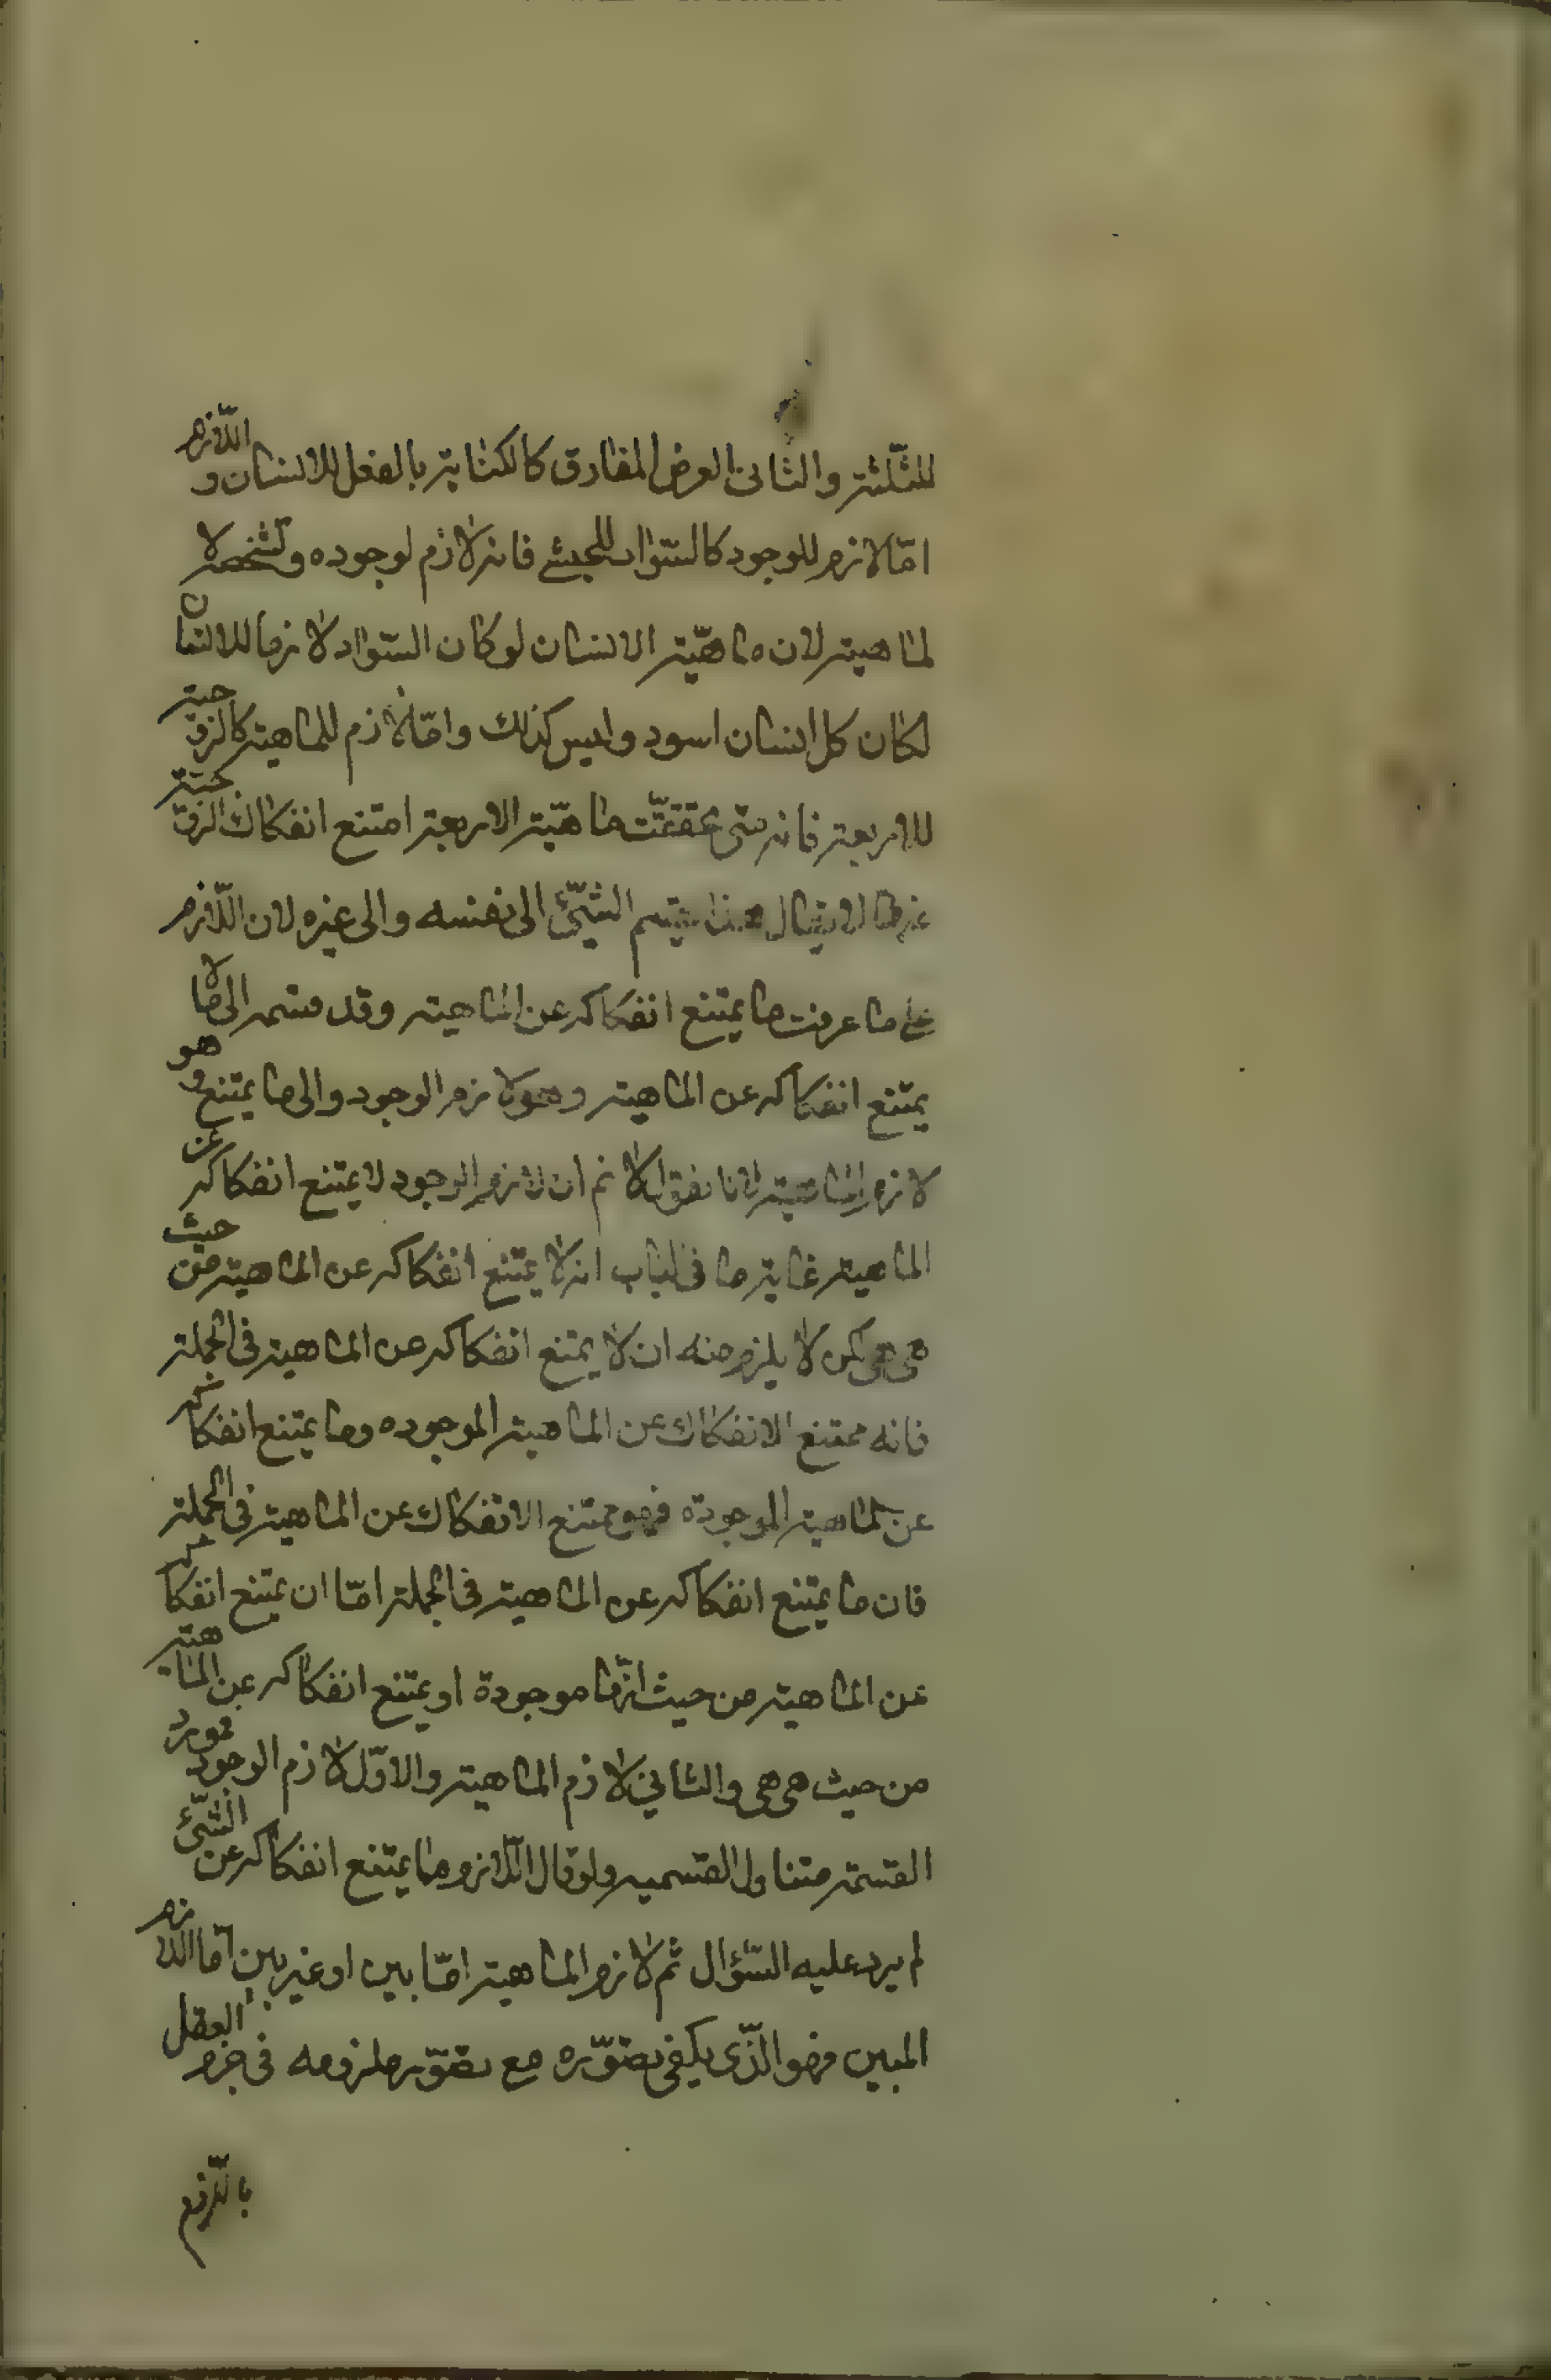 للثلثة والثانى العرض المفارق كالكتابة بالفعل للانسان واللازم
امّا لازم للوجود كالسّواد للحبشى فانه لازم لوجوده وتشخصه لا
لماهيته لان ماهيّة الانسان لو كان السّواد لازما للانسان
لكان كل انسان اسود وليس كذلك وامّا لازم للماهية كالزوجية
للاربعة فانه متى تحققت ماهيّة الاربعة امتنع انفكاك الزوجية
عنها لا يقال هذا تقسيم الشّئ الى نفسه والى غيره لان اللّازم
على ما عرفت ما يمتنع انفكاكه عن الماهية وقد قسمه الى ما لا
يمتنع انفكاكه عن الماهية وهو لازم الوجود والى ما يمتنع وهو
لازم الماهية لانا نقول لا نم ان لازم الوجود لا يمتنع انفكاكه عن
الماهية غاية ما فى الباب انه لا يمتنع انفكاكه عن الماهية من حيث
هى هى لكن لا يلزم منه ان لا يمتنع انفكاكه عن الماهية فى الجملة
فانه ممتنع الانفكاك عن الماهية الموجوده وما يمتنع انفكاكه
عن الماهية الموجودة فهو ممتنع الانفكاك عن الماهية فى الجملة
فان ما يمتنع انفكاكه عن الماهية فى الجملة امّا ان يمتنع انفكاكه
عن الماهية من حيث انّها موجودة او يمتنع انفكاكه عن الماهية
من حيث هى هى والثانى لازم الماهية والاوّل لازم الوجود فمورد
القسمة متناول القسميه ولو قال اللّازم ما يمتنع انفكاكه عن الشّئ
لم يرد عليه السّؤال ثم لازم الماهية امّا بين او غير بين امّا اللازم
المبين فهو الذّى يكفى تصوّره مع تصوّر ملزومه فى جزم العقل
باللّزوم